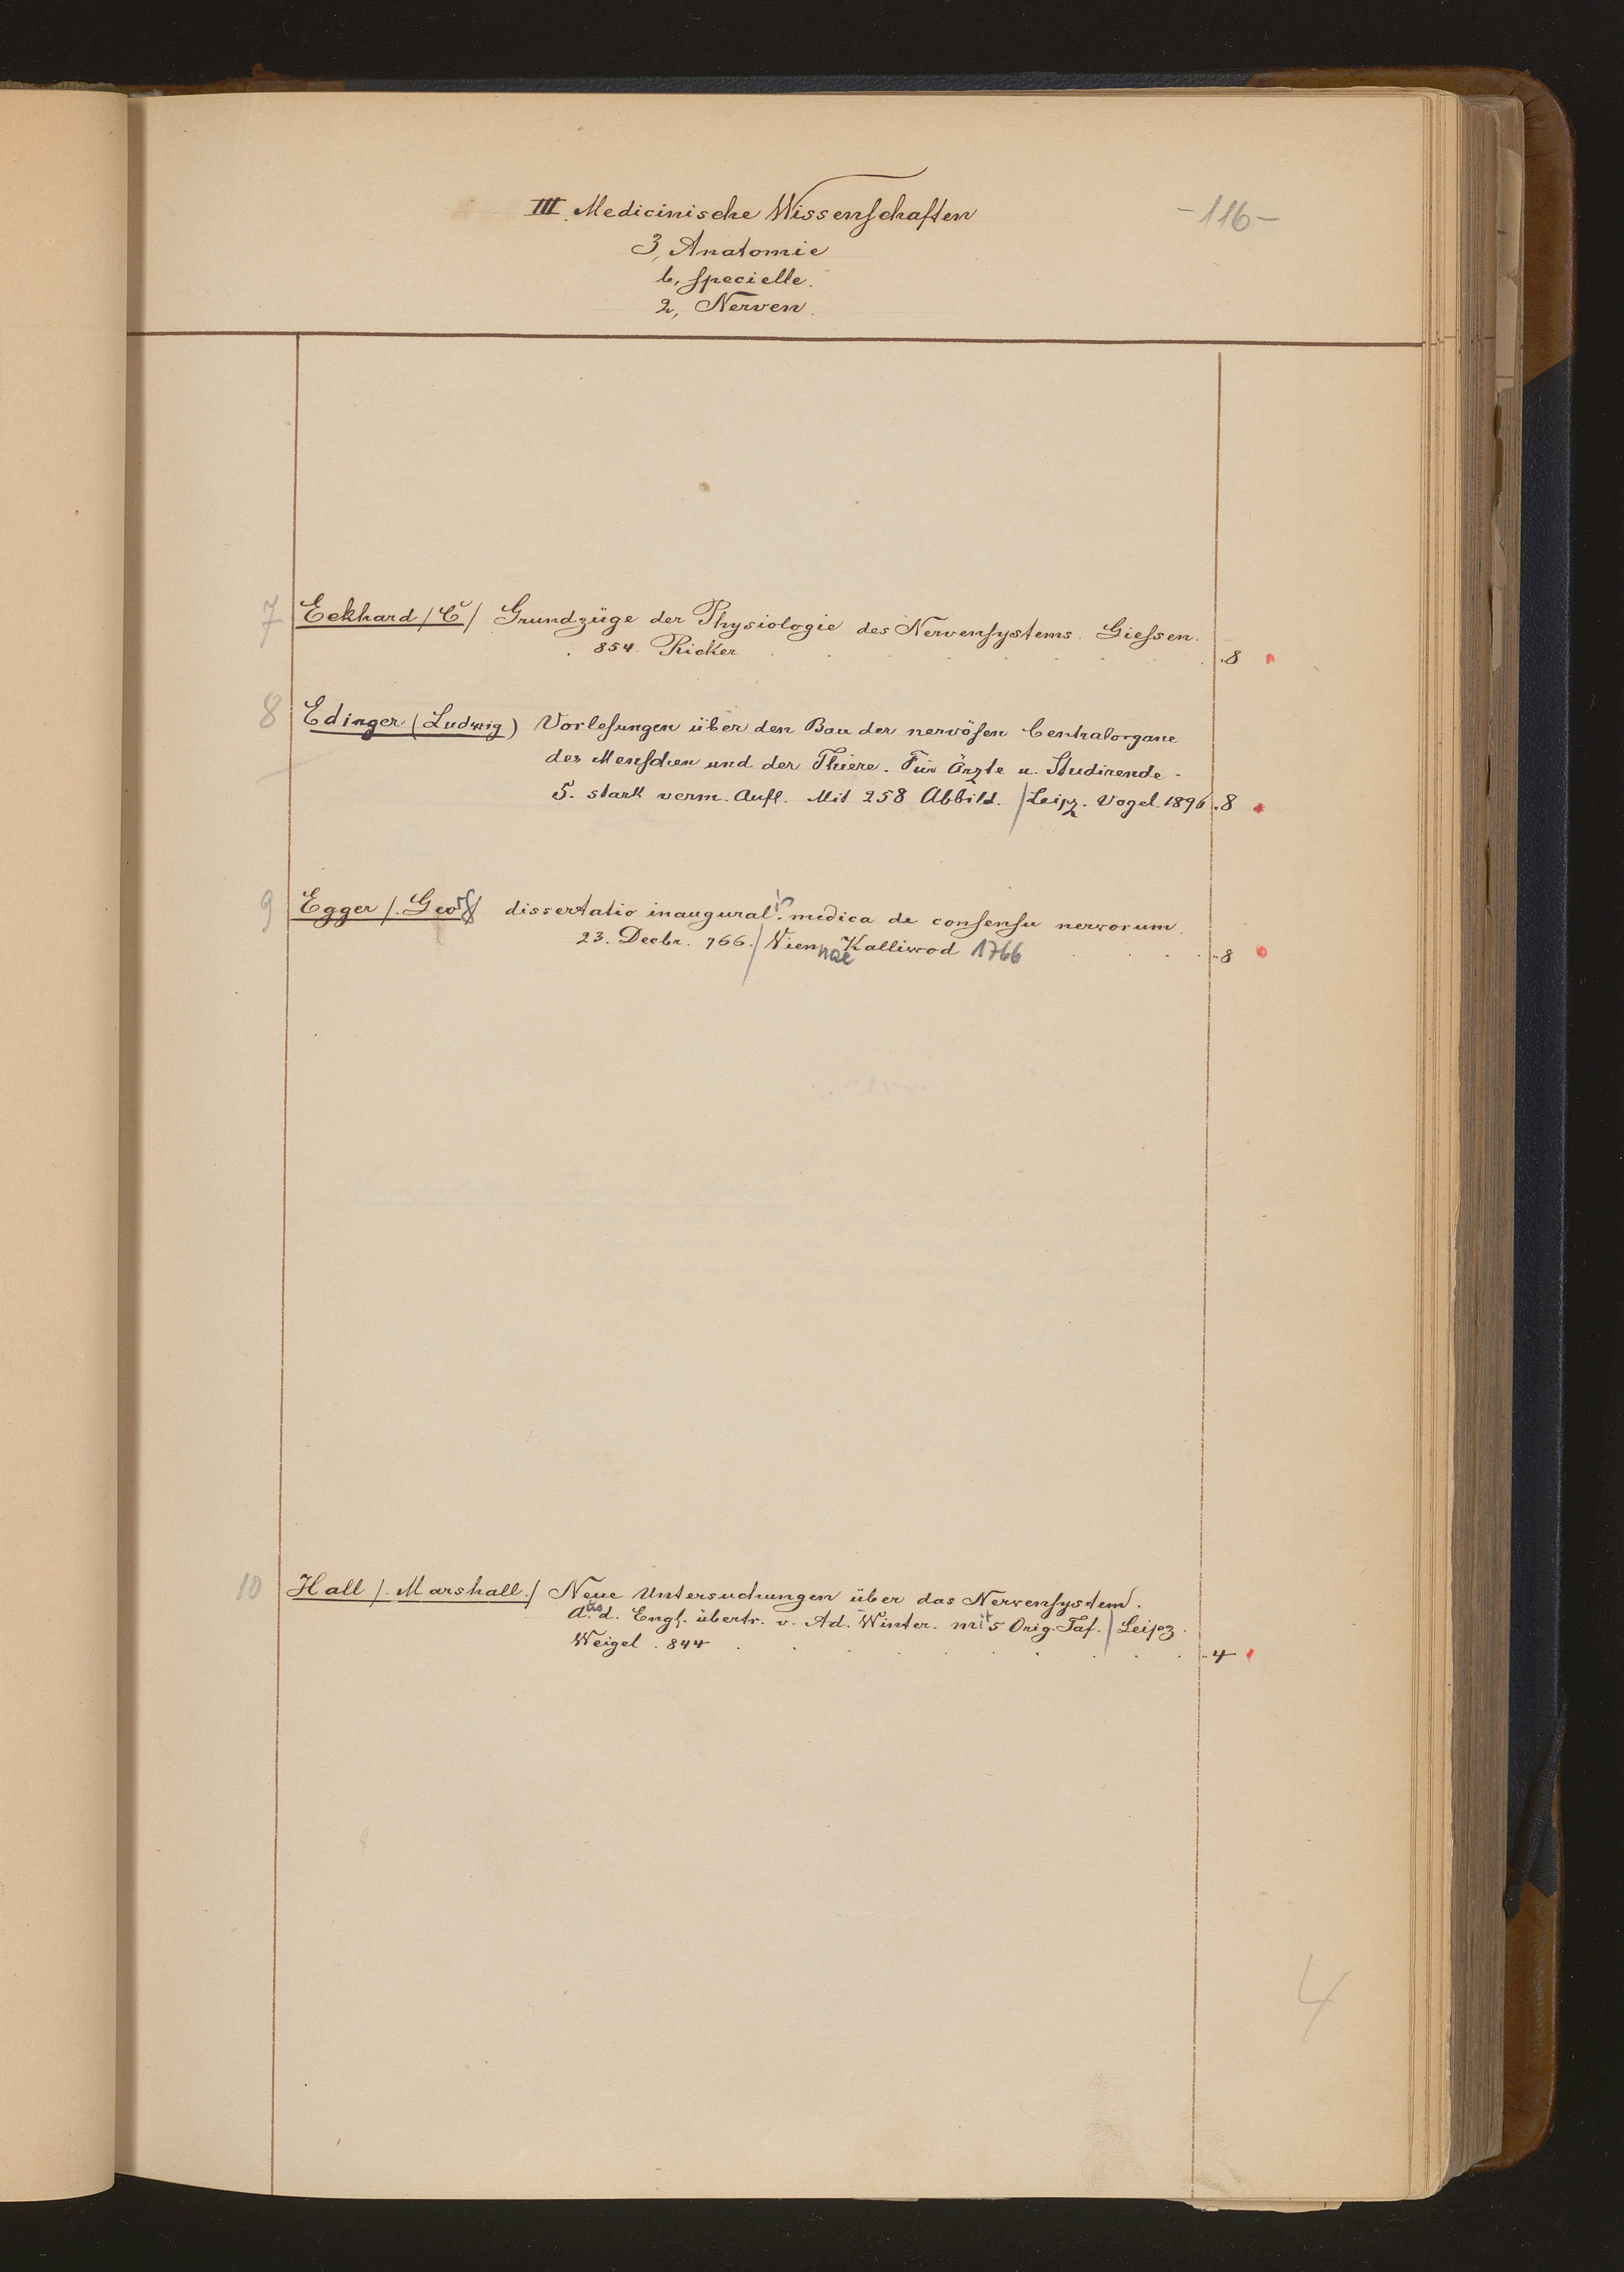 III. Medicinische Wissenschaften
-116-
3, Anatomie
b, specielle.
2, Nerven.
7 Eckhard /C/ Grundzüge der Physiologie des Nervensystems. Giessen.
854. Ricker . . . . . . . ..8
8 Edinger (Ludwig) Vorlesungen über den Bau der nervösen Centralorgane
des Menschen und der Thiere. Für Ärzte u. Studirende.
5. stark verm. Aufl. Mit 258 Abbild. / Leipz. Vogel. 1896 .8
9 Egger /. Georg/ dissertatio inaugural. is medica de consensu nervorum.
23. Decbr. 766. / Viennae Kalliwod 1766 . . . . ..8
10 Hall /. Marshall./ Neue Untersuchungen über das Nervensystem.
Aus d. Engl. übertr. v. Ad. Winter. mit 5 Orig. Taf. / Leipz.
Weigel. 844 . . . . . . . . ..4
4